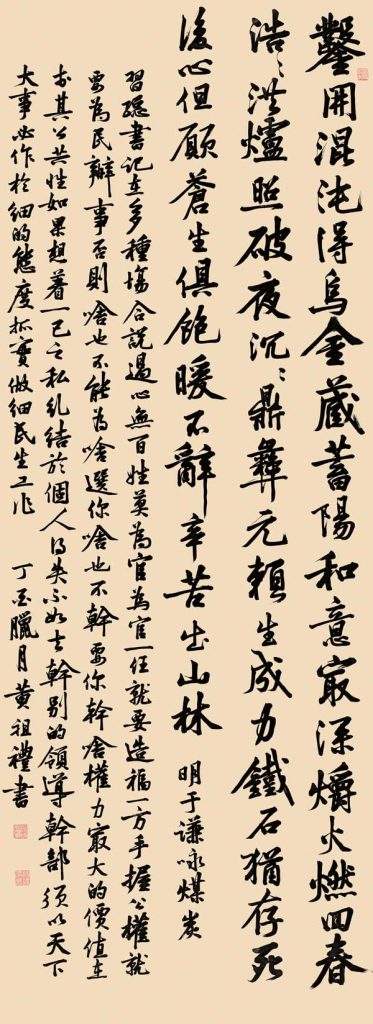 鑿開混沌得烏金藏蓄陽和意最深爝火燃回春
浩〻洪爐照破夜沉〻鼎彝元賴生成力鐵石猶存死
後心但願蒼生俱飽暖不辭辛苦出山林 明于谦咏煤炭
習總書記在多種場合説過心無百姓莫為官為官一任就要造福一方手握公權就
要為民辦事否則啥也不能為啥選你啥也不幹要你幹啥權力最大的價值在
於其公共性如果想着一己之私糾結於個人得失不如去幹别的領導幹部須以天下
大事必作於細的態度抓實做細民生工作 丁酉臘月黄祖禮書